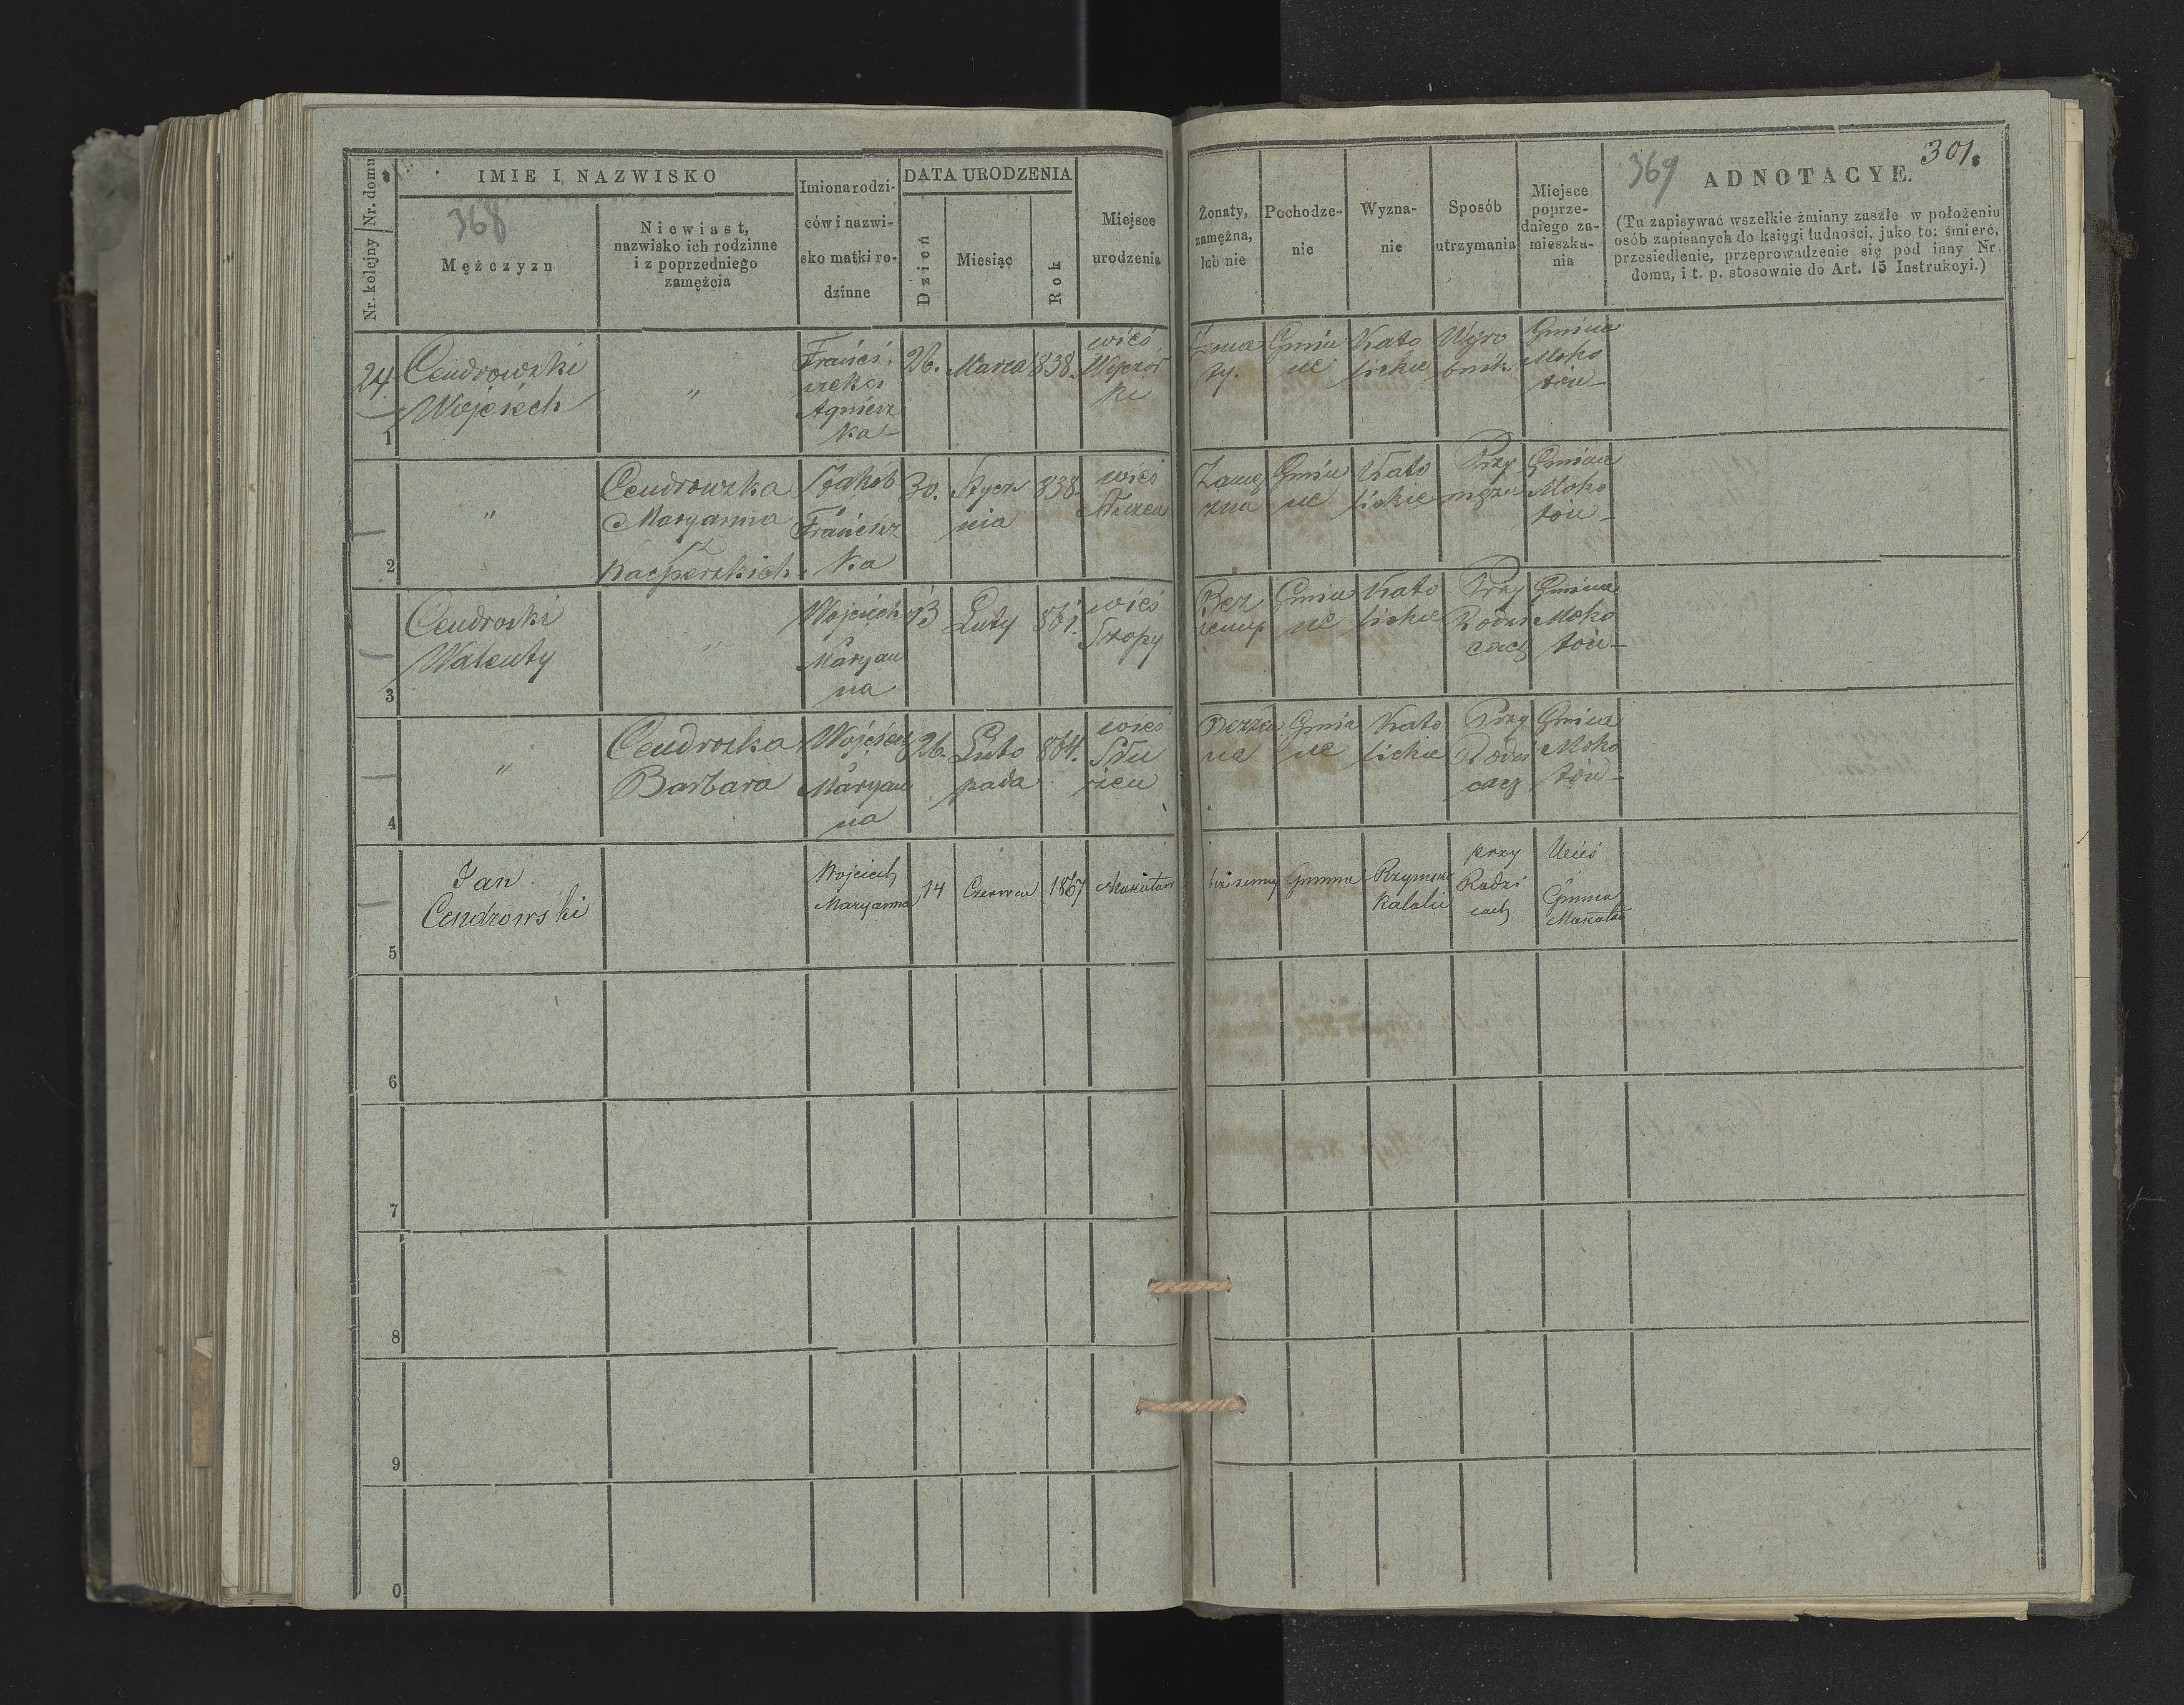 Nr. kolejny Nr. domu
IMIE I NAZWISKO
368
Mężczyzn
Niewiast,
nazwisko ich rodzinne
i z poprzedniego
zamężcia
Imiona rodzi-
ców i nazwi-
sko matki ro-
dzinne
DATA URODZENIA
Dzień
Miesiąc
Rok
Miejsce
urodzenia
Żonaty,
zamężna,
lub nie
Pochodze-
nie
Wyzna-
nie
Sposób
utrzymania
Miejsce
poprze-
dniego za-
mieszka-
nia
369
ADNOTACYE.
301.
(Tu zapisywać wszelkie zmiany zaszłe w położeniu
osób zapisanych do księgi ludności, jako to: śmierć,
przesiedlenie, przeprowadzenie się pod inny Nr.
domu, i t. p. stosownie do Art. 15 Instrukcyi.)
24
1
Cendrowski
Wojciech
"
Franci
szek i
Agniesz
ka
26.
Marca
838.
wieś
Wyczół
ki
Żona
ty.
Gmin
ne
Kato
lickie
Wyro
bnik
Gmina
Moko
tów
2
"
Cendrowska
Maryanna
z
Kacperskich
Jakób
i
Francisz
ka
30.
Stycz
nia
838.
wieś
Służew
Zamę
zna
Gmin
ne
Kato
lickie
Przy
mężu
Gmina
Moko
tów
3
Cendroski
Walenty
"
Wojciech
i
Maryan
na
13
Luty
861.
wieś
Szopy
Bez
żenny
Gmin
ne
Kato
lickie
Przy
Rodzi
cach
Gmina
Moko
tów
4
"
Cendroska
Barbara
Wojciech
i
Maryan
na
26.
Listo
pada
864.
wieś
Słu
żew
Gmin
ne
Kato
lickie
Przy
Rodzi
cach
Gmina
Moko
tów
5
Jan
Cendrowski
Wojciech
Maryanna
14
Czerwca
1867
Mokotów
bezżenny
Gminne
Rzymsko
Katolic
przy
Rodzi
cach
Wieś
i
Gmina
Mokotów
6
7
8
9
0